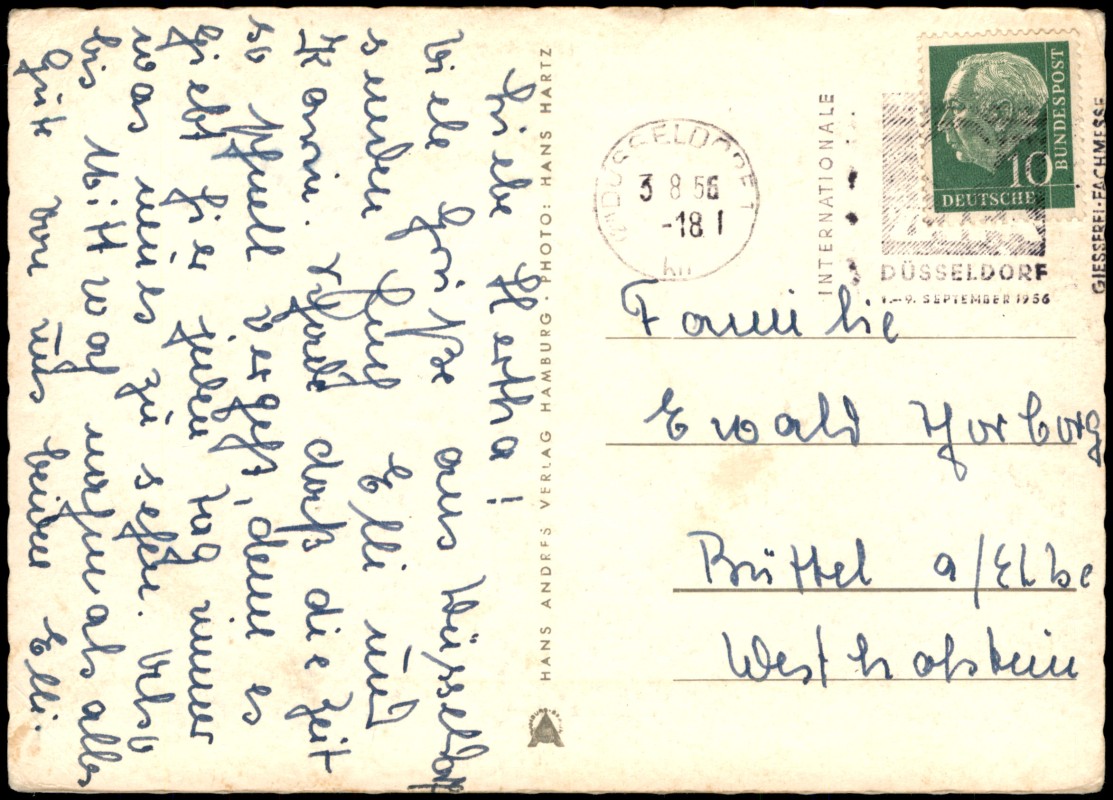 Liebe Hertha!
Viele Grüße aus Düsseldorf
senden Euch Elli und
Karin. Schade daß die Zeit
so schnell vergeht, denn es
giebt hier jeden Tag immer
was neues zu sehen. Also
bis Mittwoch nochmals alles
Gute von uns beiden Elli.
HANS ANDRES VERLAG HAMBURG · PHOTO: HANS HARTZ
DÜSSELDORF 1
3 8 56
-18
INTERNATIONALE
GIESSEREI-FACHMESSE
DÜSSELDORF
1.-9. SEPTEMBER 1956
10
DEUTSCHE
BUNDESPOST
Familie
Ewald
Büttel a/Elbe
Westholstein